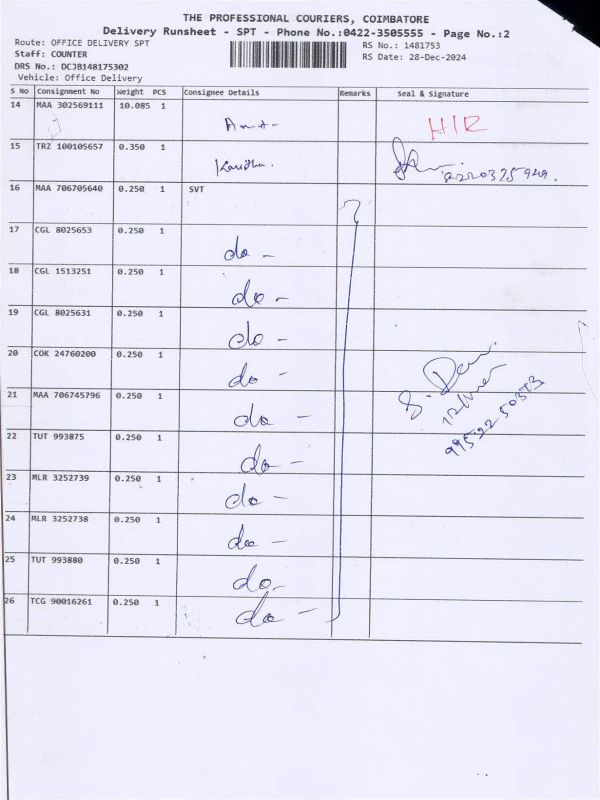 THE PROFESSIONAL COURIERS, COIMBATORE
Delivery Runsheet - SPT - Phone No.:0422-3505555 - Page No.:2
Route: OFFICE DELIVERY SPT
Staff: COUNTER
DRS No.: DCJB148175302
Vehicle: Office Delivery
RS No.: 1481753
RS Date: 28-Dec-2024
S No Consignment No Weight PCS Consignee Details Remarks Seal & Signature
14 MAA 302569111 10.085 1 HIR
15 TRZ 100105657 0.350 1 Kavitha.
16 MAA 706705640 0.250 1 SVT
17 CGL 8025653 0.250 1 do -
18 CGL 1513251 0.250 1 do -
19 CGL 8025631 0.250 1 do -
20 COK 24760200 0.250 1 do -
21 MAA 706745796 0.250 1 do -
22 TUT 993875 0.250 1 do -
23 MLR 3252739 0.250 1 do -
24 MLR 3252738 0.250 1 do -
25 TUT 993880 0.250 1 do -
26 TCG 90016261 0.250 1 do -